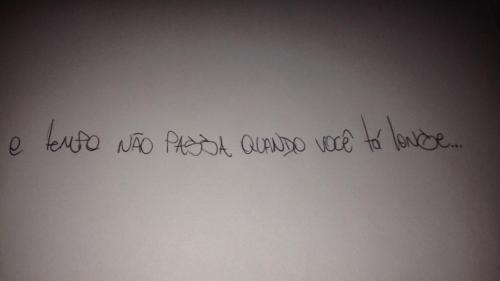 e tempo NÃO PASSA QUANDO VOCÊ tá longe...